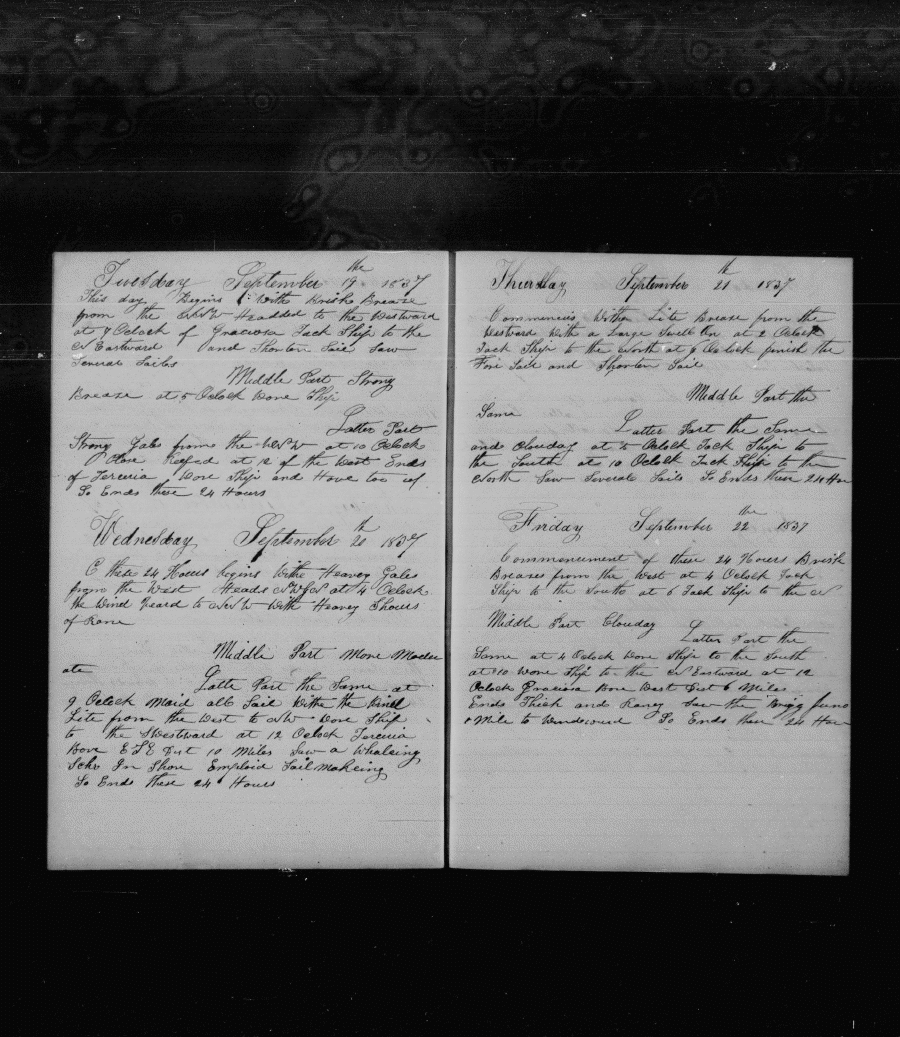 Tuesday September 19 the 1837
This day Begins With Brisk Breaze
from the WNW Headded to the Westward
at 7 Oclock of Graciosa Tack Ship to the
N Eastward and Shorten Sail Saw
Several Sailes
Middle Part Strong
Breaze at 5 Oclock Wore Ship
Latter Part
Strong Gales frome the WNW at 10 Oclock
Close Reefed at 12 of the West Ends
of Terceira Wore Ship and Hove too
So Ends these 24 Hours
Wednesday September 20 th 1837
These 24 Hours begins Withe Heavey Gales
from the West Heads NWbN at 4 Oclock
the Wind Veard to NNW With Heavey Shours
of Rane
Middle Part More Moder
ate
Latte Part the Same at
9 Oclock Maid all Sail Withe the Wind
Lite from the West to NW Wore Ship
to the SWestward at 12 Oclock Terceira
Bore ESE Dist 10 Miles Saw a Whalsing
Schr In Shore Emploid Sail Makeing
So Ends these 24 Hours
Thursday September 21 th 1837
Commences Withe Lite Breaze from the
Westward With a Large Swell On at 2 Oclock
Tack Ship to the North at 6 Oclock finish the
Fore Sail and Shorten Sail
Middle Part the
Same
Latter Part the Same
and Clouday at Oclock Tack Ship to
the South at 10 Oclock Tack Ship to the
North Saw Severals Sails So Ends these 24 Hou
Firday September 22 the 1837
Commencement of these 24 Hours Brisk
Breazes from the West at 4 Oclock Tack
Ship to the South at 6 Tack Ship to the N
Middle Part Clouday
Latter Part the
Same at 4 Oclock Wore Ship to the South
at 10 Wore Ship to the N Eastward at 12
Oclock Graciosa Bore West Dist 6 Miles
Ends Thick and Raney Saw the Brigg Juno
1 Mile to Windeward So Ends these 24 Hour